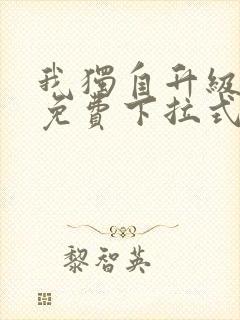 我獨自升級
免費下拉式
黎智英